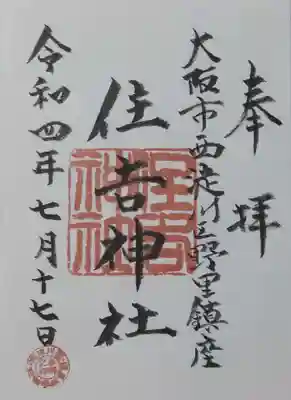 奉拝
大阪市西淀川区野里鎮座
住吉神社
住吉神社
令和四年七月十七日